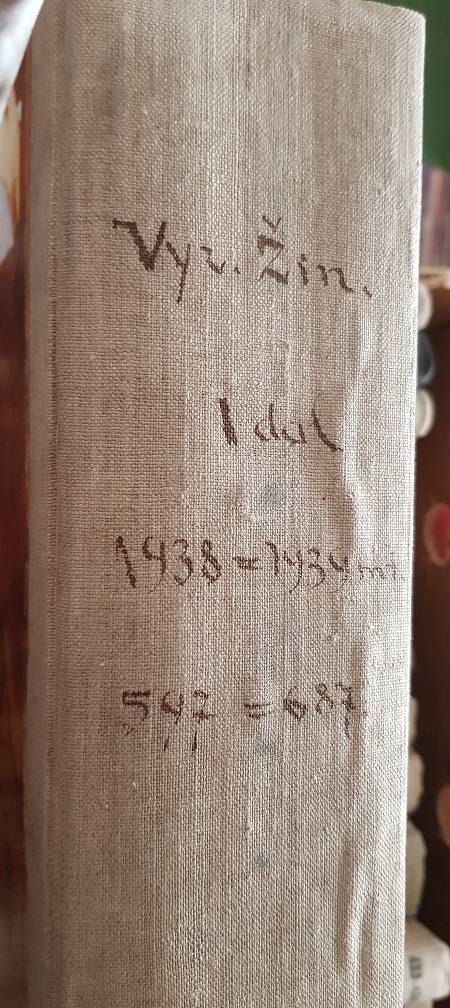 Vyr. Žin.
I dal
1938=1939 m
597=687